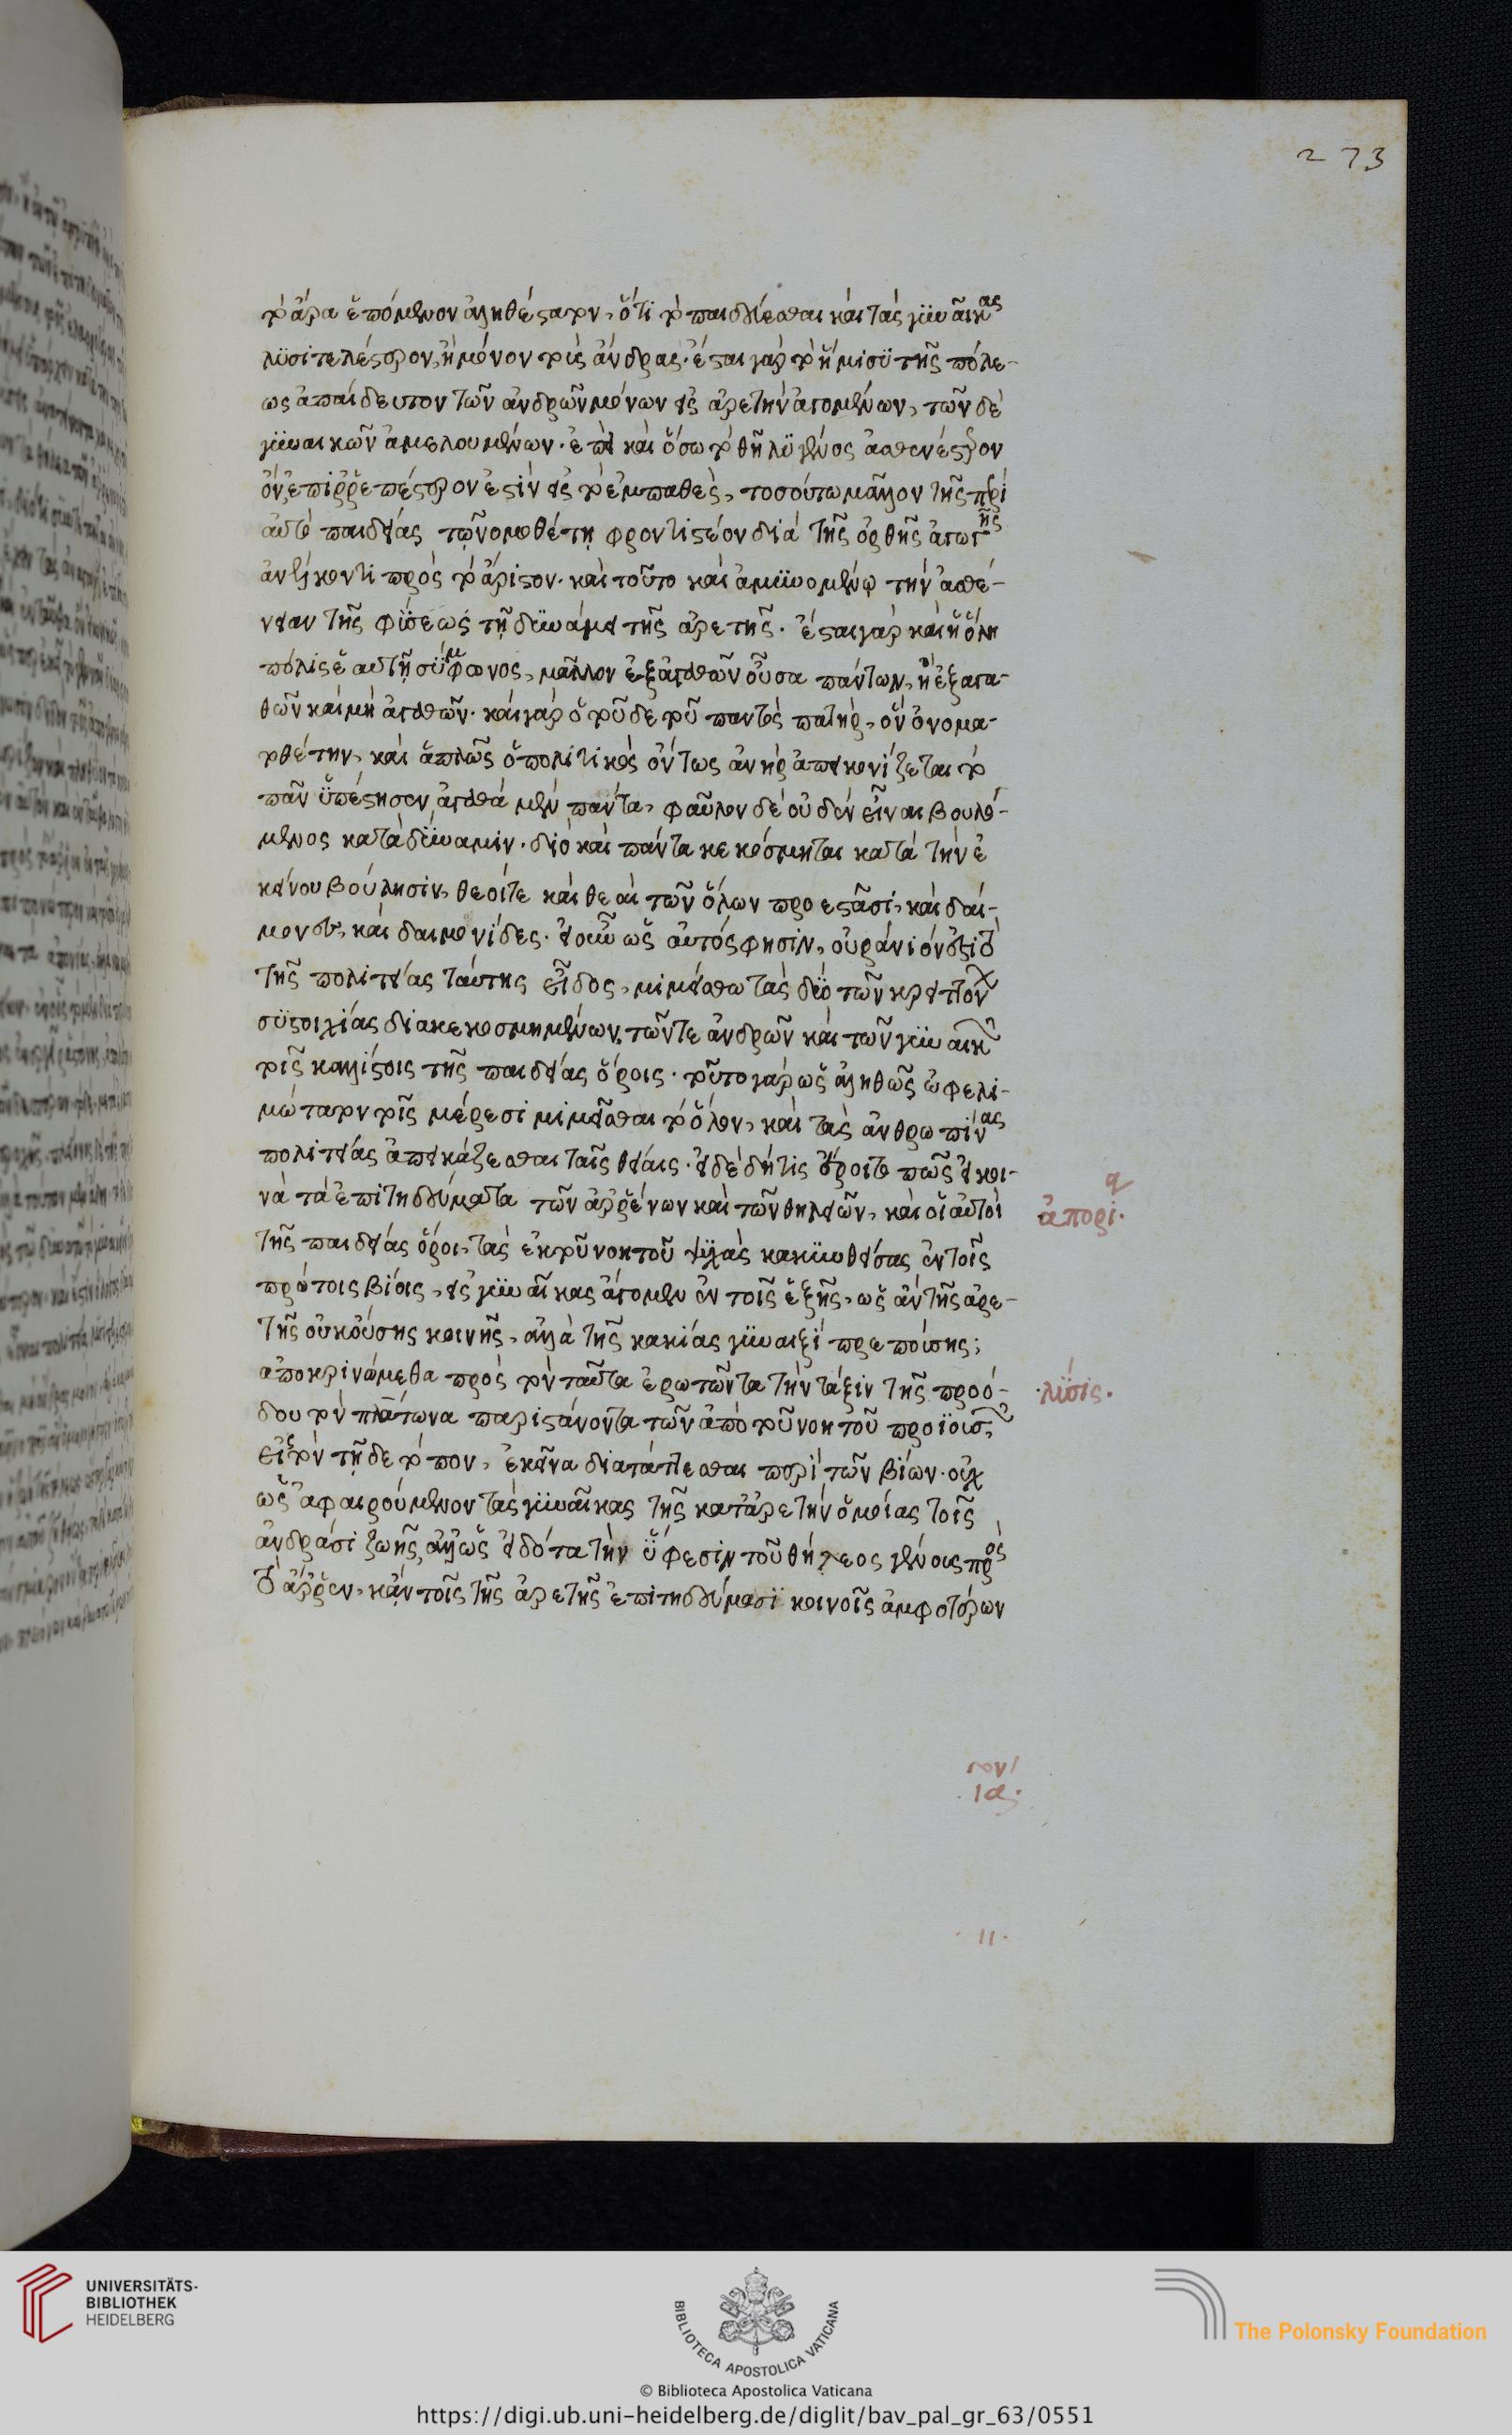 273
τὸ ἄρα ἑπόμενον ἀληθέστατον, ὅτι τὸ παιδεύεσθαι καὶ τὰς γυναῖκας
λυσιτελέστερον, ἢ μόνον τοὺς ἄνδρας· ἔσται γὰρ τὸ ἥμισυ τῆς πόλε-
ως ἀπαίδευτον τῶν ἀνδρῶν μόνων εἰς ἀρετὴν ἀγομένων, τῶν δὲ
γυναικῶν ἀμελουμένων· ἐπεὶ καὶ ὅσω τὸ θῆλυ γένος ἀσθενέστερον
ὂν, ἐπιρρεπέστερον ἐστὶν εἰς τὸ ἐμπαθὲς, τοσούτω μᾶλλον τῆς περὶ
αὐτὸ παιδείας τῷ νομοθέτῃ φροντιστέον διὰ τῆς ὀρθῆς ἀγωγῆς
ἀνήκοντι πρὸς τὸ ἄριστον· καὶ τοῦτο καὶ ἀμυνομένῳ τὴν ἀσθέ-
νειαν τῆς φύσεως τῇ δυνάμει τῆς ἀρετῆς· ἔσται γὰρ καὶ ἡ ὅλη
πόλις ἑαυτῇ σύμφωνος, μᾶλλον ἐξ ἀγαθῶν οὖσα πάντων, ἢ ἐξ ἀγα-
θῶν καὶ μὴ ἀγαθῶν· καὶ γὰρ ὁ τοῦδε τοῦ παντὸς πατὴρ, ὃν ὀνομα-
τοθέτην, καὶ ἁπλῶς ὁ πολιτικὸς ὄντως ἀνὴρ ἀπεικονίζεται τὸ
πᾶν ὑπέστησεν ἀγαθὰ μὲν πάντα, φαῦλον δὲ οὐδὲν εἶναι βουλό-
μενος κατὰ δύναμιν· διὸ καὶ πάντα κεκόσμηται κατὰ τὴν ἐ
κείνου βούλησιν, θεοί τε καὶ θεαὶ τῶν ὅλων προεστᾶσι, καὶ δαί-
μονες, καὶ δαιμονίδες· εἰ οὖν ὡς αὐτός φησιν, οὐράνιόν ἐστι τὸ
τῆς πολιτείας ταύτης εἶδος, μιμείσθω τὰς δύο τῶν κρειττόνων
συστοιχίας διακεκοσμημένων, τῶν τε ἀνδρῶν καὶ τῶν γυναικῶν
τοῖς καλλίστοις τῆς παιδείας ὅροις· τοῦτο γὰρ ὡς ἀληθῶς ὠφελι-
μώτατον τοῖς μέρεσι μιμεῖσθαι τὸ ὅλον, καὶ τὰς ἀνθρωπίνας
πολιτείας ἀπεικάζεσθαι ταῖς θείαις· εἰ δὲ δή τις ἔροιτο πῶς εἰ κοι-
νὰ τὰ ἐπιτηδεύματα τῶν ἀρρένων καὶ τῶν θηλειῶν, καὶ οἱ αὐτοὶ
ἀπορί.
τῆς παιδείας ὅροι, τὰς ἐκ τοῦ νοητοῦ ψυχὰς κακυνθείσας ἐν τοῖς
πρώτοις βίοις, εἰς γυναῖκας ἄγομεν ἐν τοῖς ἑξῆς, ὡς ἂν τῆς ἀρε-
τῆς οὐκ οὔσης κοινῆς, ἀλλὰ τῆς κακίας γυναιξὶ πρεπούσης;
ἀποκρινώμεθα πρὸς τὸν ταῦτα ἐρωτῶντα τὴν τάξιν τῆς προό-
λύσις.
δου τὸν πλάτωνα παριστάνοντα τῶν ἀπὸ τοῦ νοητοῦ προϊουσῶν
εἰς τὸν τῇδε τόπον, ἐκεῖνα διατάττεσθαι περὶ τῶν βίων· οὐχ
ὡς ἀφαιρούμενον τὰς γυναῖκας τῆς κατ' ἀρετὴν ὁμοίας τοῖς
ἀνδράσι ζωῆς, ἀλλ' ὡς εἰδότα τὴν ὕφεσιν τοῦ θήλεος γένους πρὸς
τὸ ἄρρεν, κἀν τοῖς τῆς ἀρετῆς ἐπιτηδεύμασι κοινοῖς ἀμφοτέρων
UNIVERSITÄTS-
BIBLIOTHEK
HEIDELBERG
BIBLIOTECA APOSTOLICA VATICANA
The Polonsky Foundation
© Biblioteca Apostolica Vaticana
https://digi.ub.uni-heidelberg.de/diglit/bav_pal_gr_63/0551